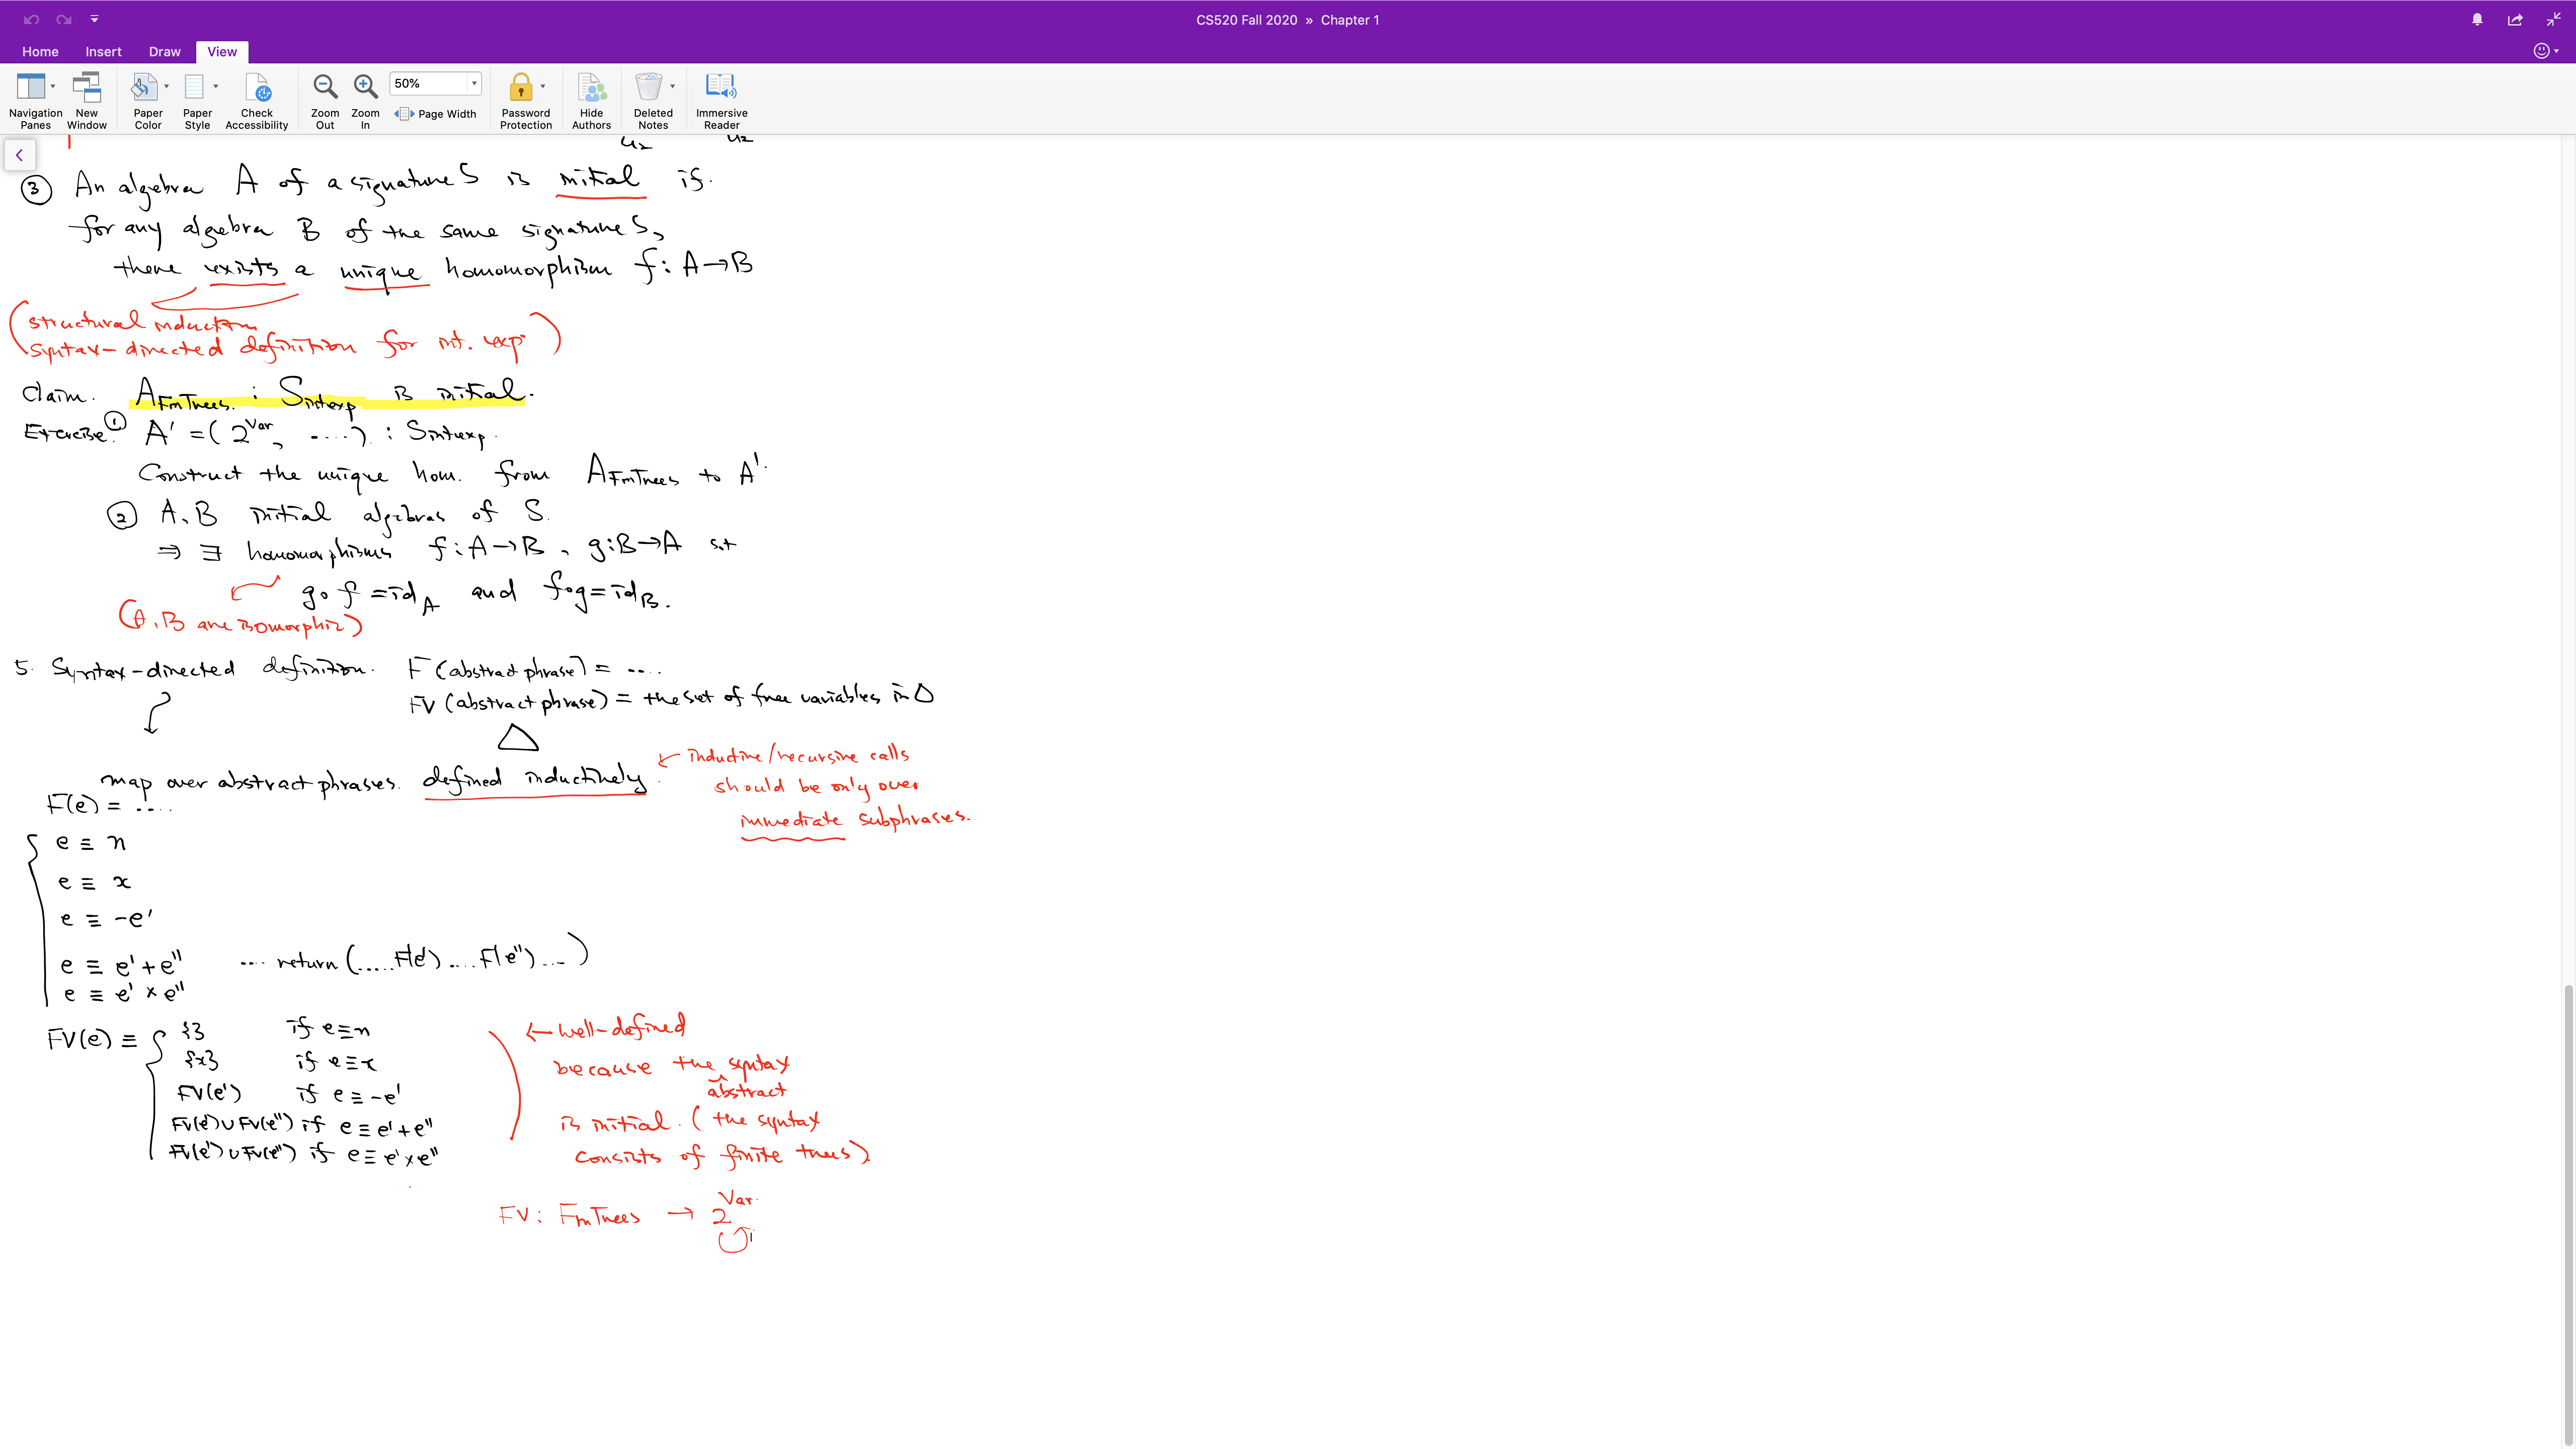 CS520 Fall 2020 » Chapter 1
Home Insert Draw View
50%
Navigation Panes
New Window
Paper Color
Paper Style
Check Accessibility
Zoom Out
Zoom In
Page Width
Password Protection
Hide Authors
Deleted Notes
Immersive Reader
③ An algebra A of a signature S is initial if.
for any algebra B of the same signature S,
there exists a unique homomorphism f : A → B
(structural induction
syntax-directed definition for int. exp)
Claim. A_FinTrees : S_intexp is initial.
Exercise. ① A' = (2^Var, ....) : S_intexp.
Construct the unique hom. from A_FinTrees to A'.
② A, B initial algebras of S.
⇒ ∃ homomorphisms f : A → B, g : B → A s.t
g∘f = id_A and f∘g = id_B.
(A, B are isomorphic)
5. Syntax-directed definition. F(abstract phrase) = ....
FV(abstract phrase) = the set of free variables in △
△
map over abstract phrases. defined inductively.
← inductive/recursive calls
should be only over
immediate subphrases.
F(e) = ....
e ≡ n
e ≡ x
e ≡ -e'
e ≡ e' + e'' .... return (..... F(e') .... F(e'') ....)
e ≡ e' × e''
FV(e) ≡ { {} if e ≡ n
{x} if e ≡ x
FV(e') if e ≡ -e'
FV(e') ∪ FV(e'') if e ≡ e' + e''
FV(e') ∪ FV(e'') if e ≡ e' × e''
← well-defined
because the syntax
abstract
is initial. (the syntax
consists of finite trees).
FV : FinTrees → 2^Var